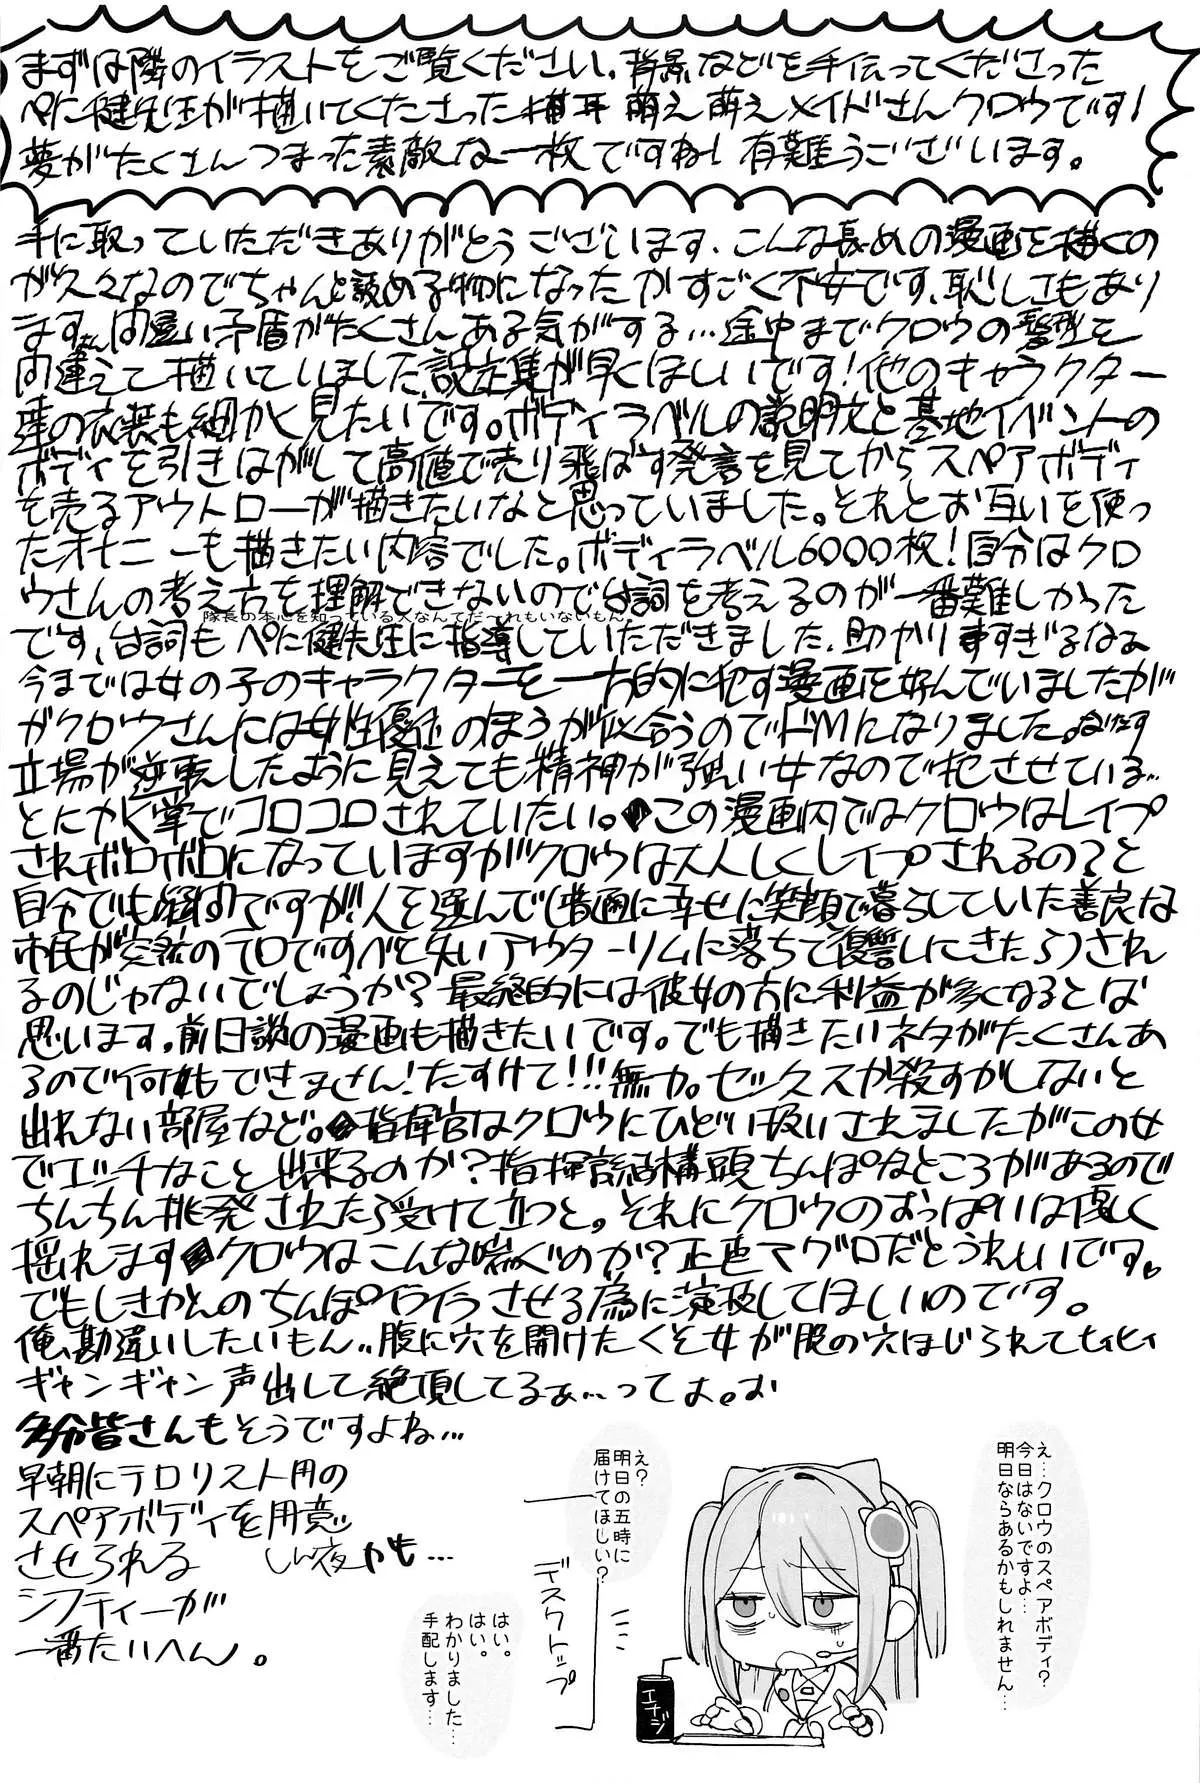 まずは隣のイラストをご覧ください。背景などを手伝ってくださった
ぺに健先生が描いてくださった猫耳萌え萌えメイドさんクロウです!
夢がたくさんつまった素敵な一枚ですね!有難うございます。
手に取っていただきありがとうございます、こんな長めの漫画を描くの
が久々なのでちゃんと読める物になったかすごく不安です、恥しさもあり
ます、間違い矛盾がたくさんある気がする…途中までクロウの髪型を
間違えて描いていました設定集が早くほしいです!他のキャラクター
達の衣装も細かく見たいです。ボディラベルの説明文と基地イベントの
ボディを引きはがして高値で売り飛ばす発言を見てからスペアボディ
を売るアウトローが描きたいなと思っていました。それとお互いを使っ
たオナニーも描きたい内容でした。ボディラベル6000枚!自分はクロ
ウさんの考え方を理解できないので台詞を考えるのが一番難しかった
隊長の本心を知っている人なんてだ〜れもいないもん。
です、台詞もぺに健先生に指導していただきました、助かりますすぎるなぁ
今までは女の子のキャラクターを一方的に犯す漫画を好んでいましたが
がクロウさんには女性優位のほうが似合うのでドMになりました。
立場が逆転したように見えても精神が強い女なので犯させている…
とにかく掌でコロコロされていたい。この漫画内ではクロウはレイプ
されボロボロになっていますがクロウは大人しくレイプされるの?と
自分でも疑問ですが!人を選んで(普通に幸せに笑顔で暮らしていた善良な
市民が突然のテロですべてを失いアウターリムに落ちて復讐しにきたら)され
るのじゃないでしょうか?最終的には彼女の方に利益が多くなるとは
思います。前日談の漫画も描きたいです。でも描きたいネタがたくさんあ
るので何もできません!たすけて!!!無力。セックスか殺すかしないと
出れない部屋など。指揮官はクロウにひどい扱いされましたがこの女
でエッチなこと出来るのか?指揮官結構頭ちんぽなところがあるので
ちんちん挑発されたら受けて立つと。それにクロウのおっぱいは優しく
揺れますクロウはこんな喘ぐのか?正直マグロだとうれしいです。
でもしきかんのちんぽイライラさせる為に演技してほしいのです。
俺、勘違いしたいもん、腹に穴を開けたくそ女が股の穴ほじられてヒィヒィ
ギャンギャン声出して絶頂してるぁ…ってよ。お
多分皆さんもそうですよね…
早朝にテロリスト用の
スペアボディを用意
させられる しん夜かも…
シフティーが
一番たいへん。
え…クロウのスペアボディ?
今日はないですよ…
明日ならあるかもしれません…
え?
明日の五時に
届けてほしい?
デスクトップ
はい。
はい。
わかりました…
手配します…
エナジ